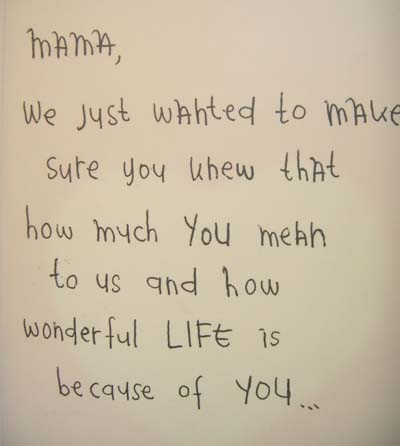 MAMA,
We just wanted to make
sure you knew that
how much You mean
to us and how
wonderful LIFE is
because of YOU...